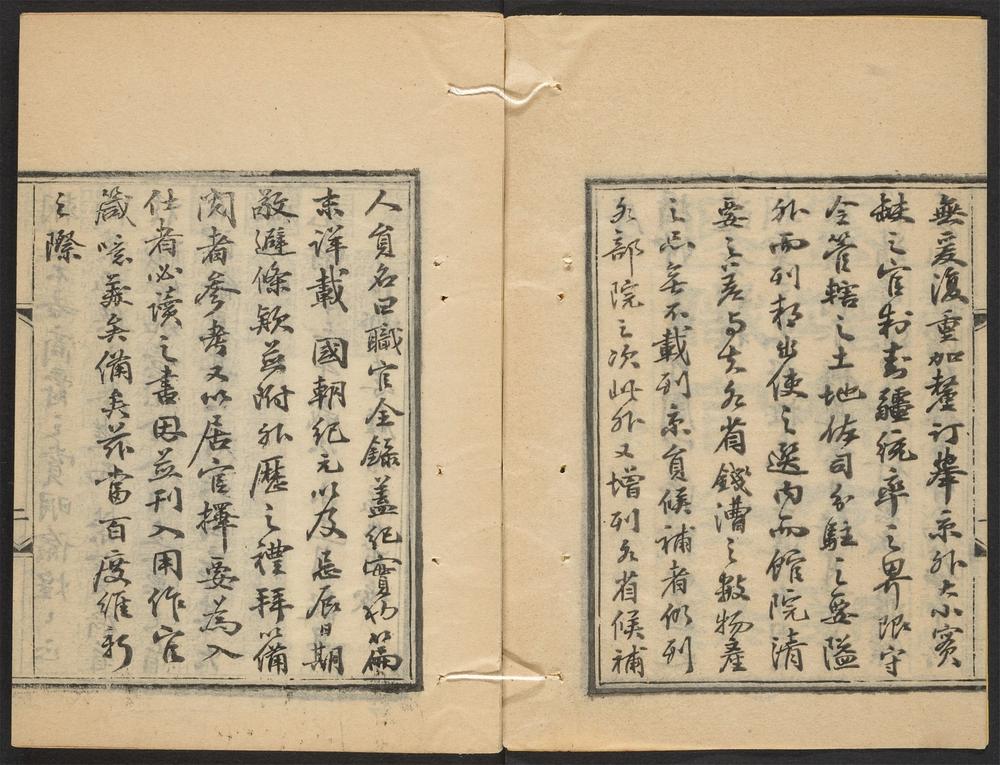 無爰復重加釐訂舉京外大小實
缺之官制封疆統率之界限守
令管轄之土地佐司分駐之要隘
外而列邦出使之選內而館院清
要之差與夫各省錢漕之數物產
之志無不載列京員候補者仍列
各部院之次此外又增列各省候補
人員名曰職官全錄蓋紀實也篇
末詳載　國朝紀元以及忌辰日期
敬避條款並附外歷之禮拜備
閱者參考又以居官揮要為入
仕者必讀之書因並刊入用作官
箴噫美矣備矣茲當百度維新
之際